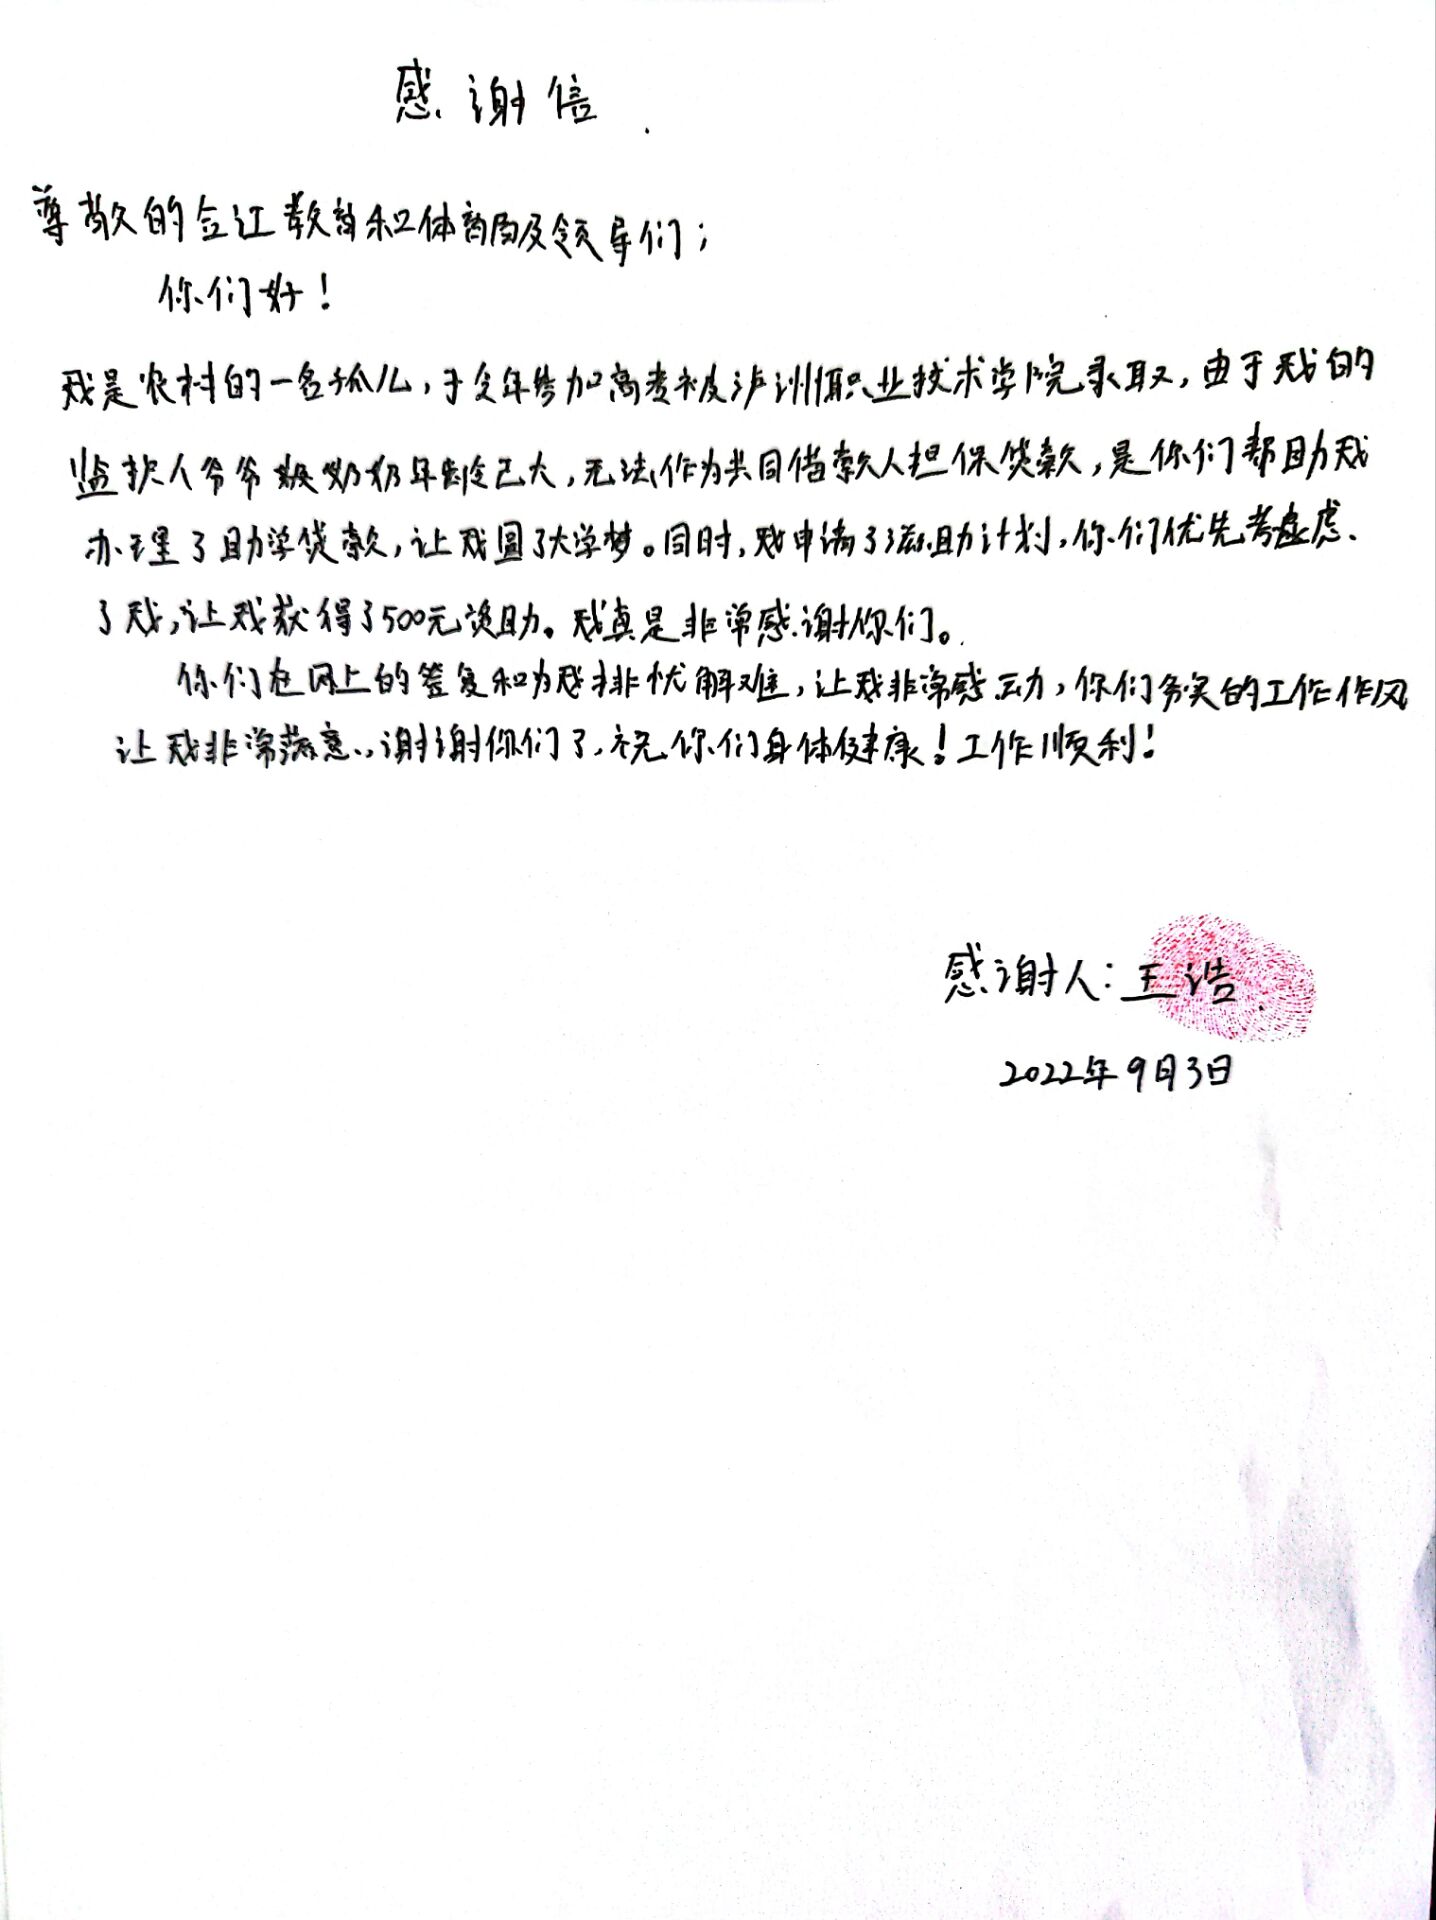 感谢信
尊敬的合江教育和体育局及领导们：
你们好！
我是农村的一名孤儿，于今年参加高考被泸州职业技术学院录取，由于我的
监护人爷爷奶奶年龄已大，无法作为共同借款人担保贷款，是你们帮助我
办理了助学贷款，让我圆了大学梦。同时，我申请了滋助计划，你们优先考虑
了我，让我获得了500元资助。我真是非常感谢你们。
你们在网上的答复和为我排忧解难，让我非常感动，你们务实的工作作风
让我非常满意，谢谢你们了，祝你们身体健康！工作顺利！
感谢人：王浩
2022年9月3日